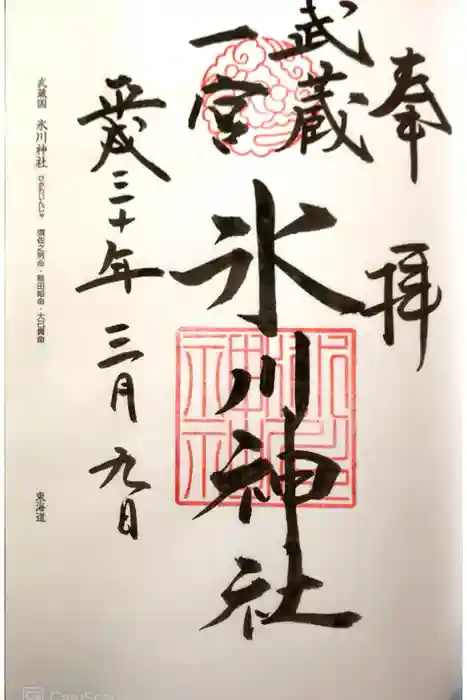 奉拝
武蔵
一宮
氷川神社
平成三十年三月九日
武蔵国 氷川神社 ひかわじんじゃ 須佐之男命・稲田姫命・大己貴命
東海道